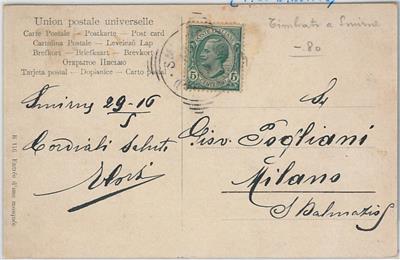 Union postale universelle
Carte Postale — Postkarte — Post card
Cartolina Postale — Levelező Lap
Brefkort — Briefkaart — Brevkort
Открытое Письмо
Tarjeta postal — Dopisnice — Carto postal
Timbrati a Smirne
-80
5 5
Smirne 29-16
5
Cordiali saluti
Sr
Giov. Pogliani
Milano
S Dalmazio 5
R 116 Entrée d'une mosquée